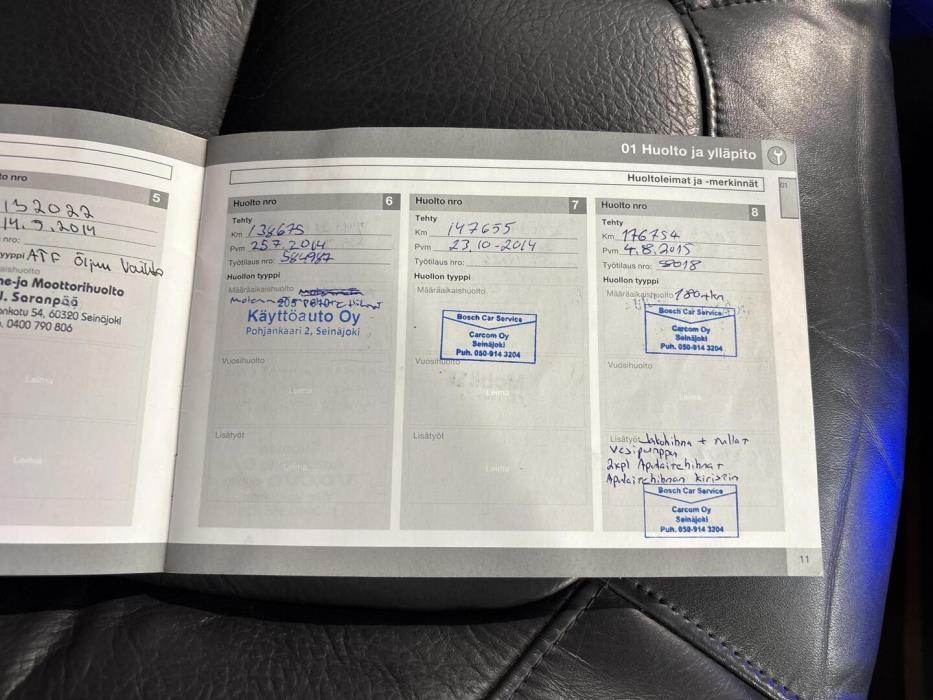 01 Huolto ja ylläpito
Huoltoleimat ja -merkinnät
01
to nro
5
132022
14.9.2014
nro:
yyppi ATF Öljyn Vaihto
aishuolto
ne-ja Moottorihuolto
J. Saranpää
onkatu 54, 60320 Seinäjoki
. 0400 790 806
Leima
Leima
Huolto nro
6
Tehty
Km 138675
Pvm 25.7.2014
Työtilaus nro: 584987
Huollon tyyppi
Määräaikaishuolto
Käyttöauto Oy
Pohjankaari 2, Seinäjoki
Vuosihuolto
Leima
Lisätyöt
Leima
Huolto nro
7
Tehty
Km 147655
Pvm 23.10-2014
Työtilaus nro:
Huollon tyyppi
Määräaikaishuolto
Bosch Car Service
Carcom Oy
Seinäjoki
Puh. 050-914 3204
Vuosihuolto
Leima
Lisätyöt
Leima
Huolto nro
8
Tehty
Km 176754
Pvm 4.8.2015
Työtilaus nro: 5018
Huollon tyyppi
Määräaikaishuolto 180tkm
Bosch Car Service
Carcom Oy
Seinäjoki
Puh. 050-914 3204
Vuosihuolto
Leima
Lisätyöt Jakohihna + rullat
Vesipumppu
2xpl Apulaitehihnat
Apulaitehihnan kiristin
Bosch Car Service
Carcom Oy
Seinäjoki
Puh. 050-914 3204
11